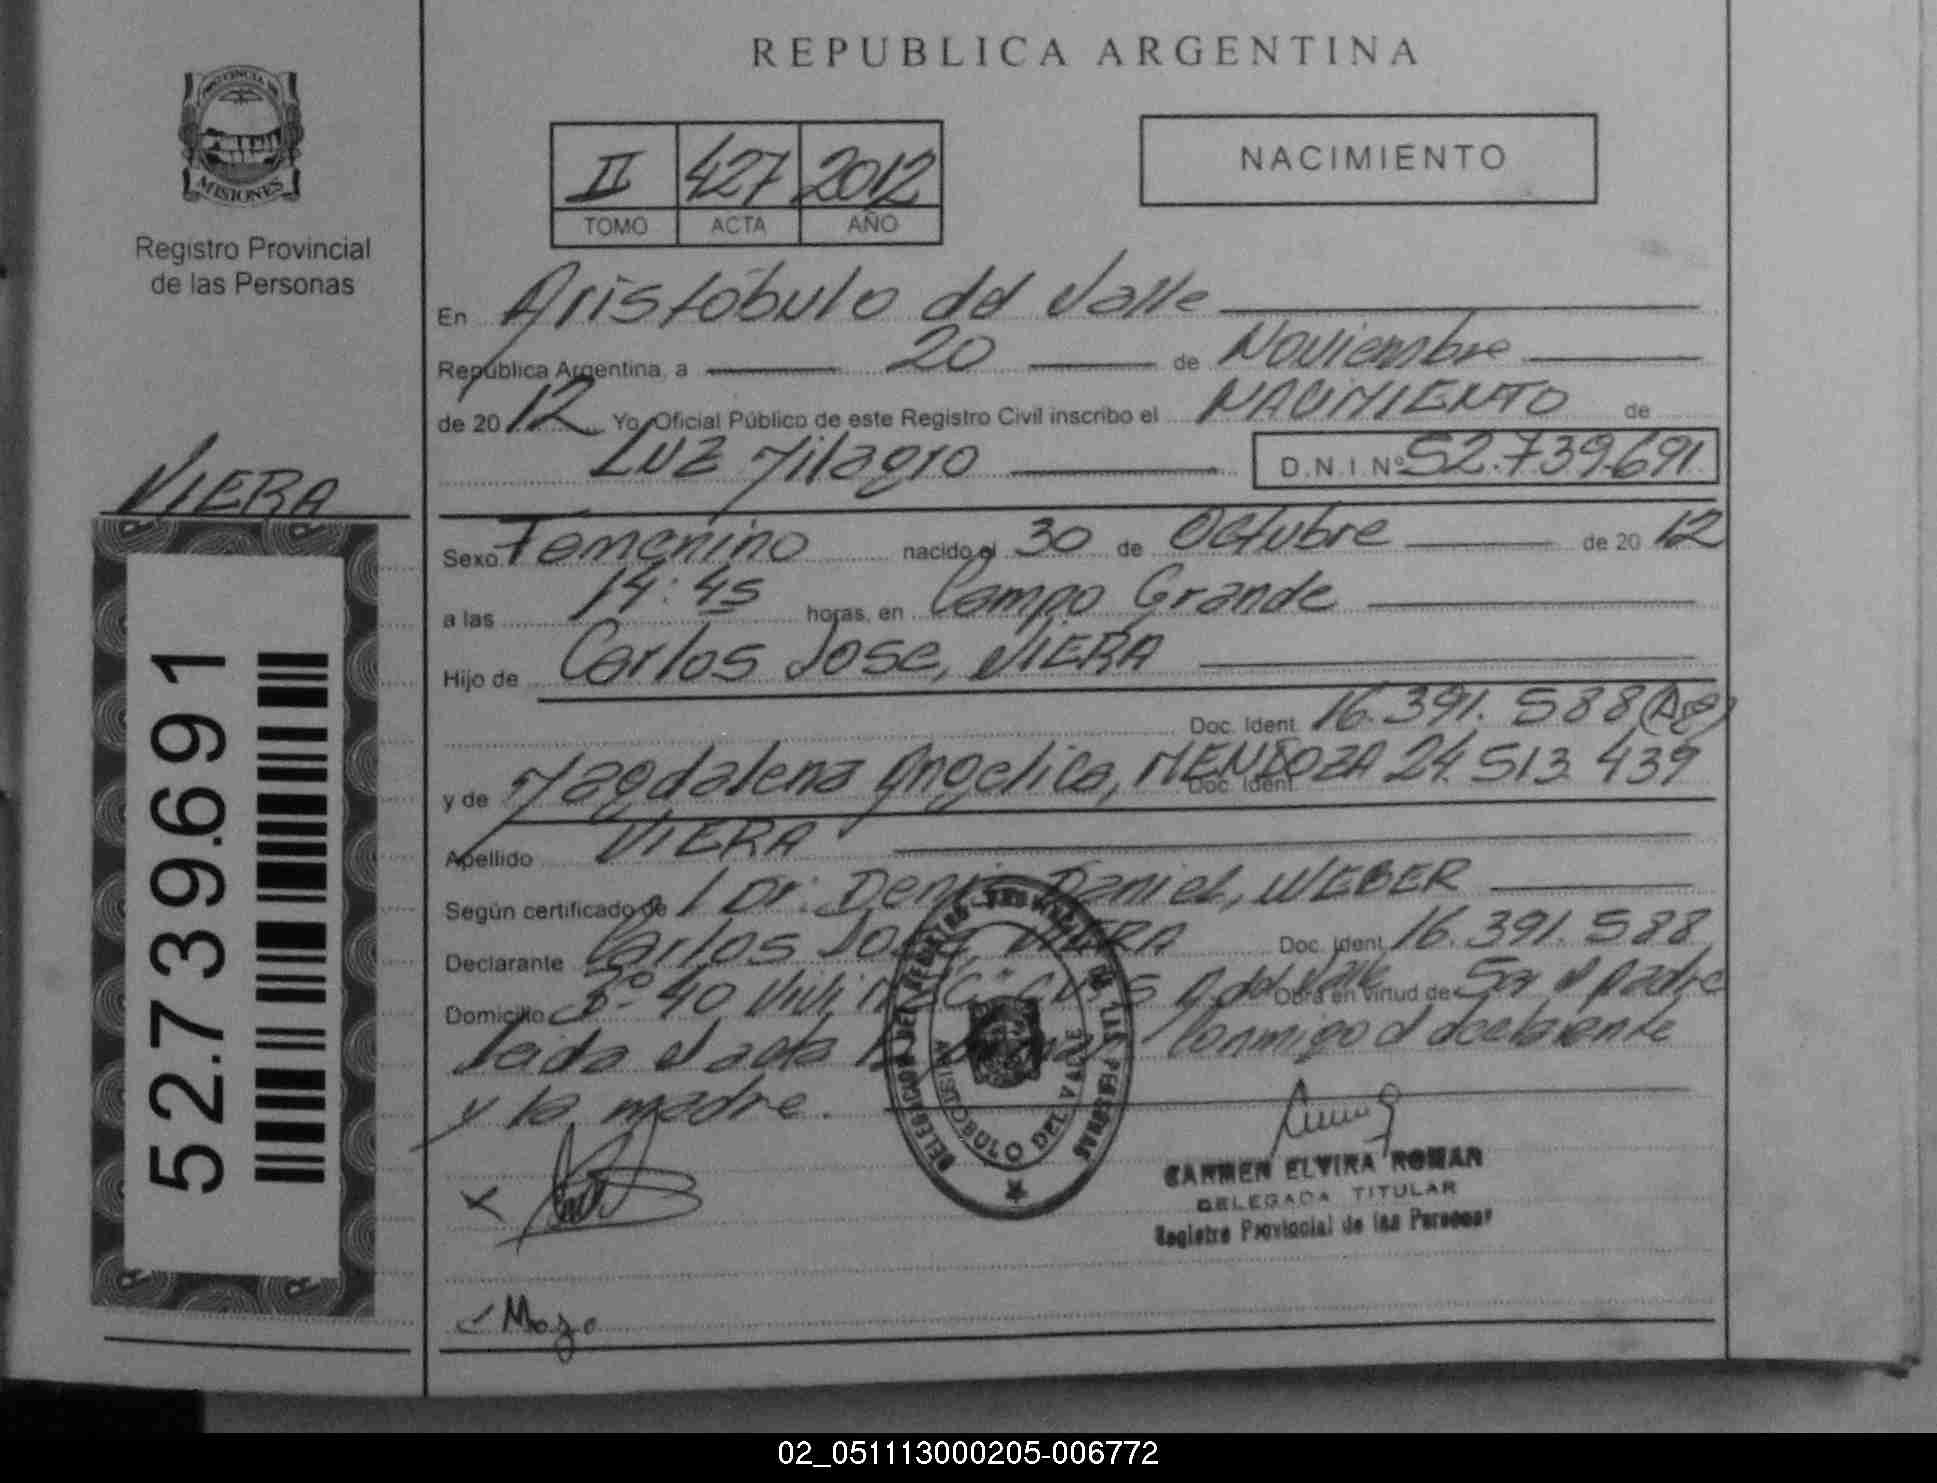 REPUBLICA ARGENTINA
PROVINCIA DE
MISIONES
Registro Provincial
de las Personas
II 427 2012
TOMO ACTA AÑO
NACIMIENTO
En Aristóbulo del Valle
República Argentina, a 20 de Noviembre
de 2012 Yo, Oficial Público de este Registro Civil inscribo el NACIMIENTO de
LUZ Milagro D.N.I. Nº 52.739.691
VIERA
52.739.691
Sexo Femenino nacido el 30 de Octubre de 2012
a las 14:45 horas, en Campo Grande
Hijo de Carlos Jose, VIERA
Doc. Ident. 16.391.588 (A8)
y de Magdalena Angelica, MENDOZA Doc. Ident. 24.513.439
Apellido VIERA
Según certificado de / Dr: Denis Daniel, WEBER
Declarante Carlos José, VIERA Doc. Ident. 16.391.588
Domicilio 40 Vivi A. del Valle Obra en virtud de Ser el padre
Leida el acta conmigo el declarante
y la madre.
DELEGACION DEL REGISTRO PROVINCIAL DE LAS PERSONAS
ARISTOBULO DEL VALLE
CARMEN ELVIRA ROMAN
DELEGADA TITULAR
Registro Provincial de las Personas
02_051113000205-006772